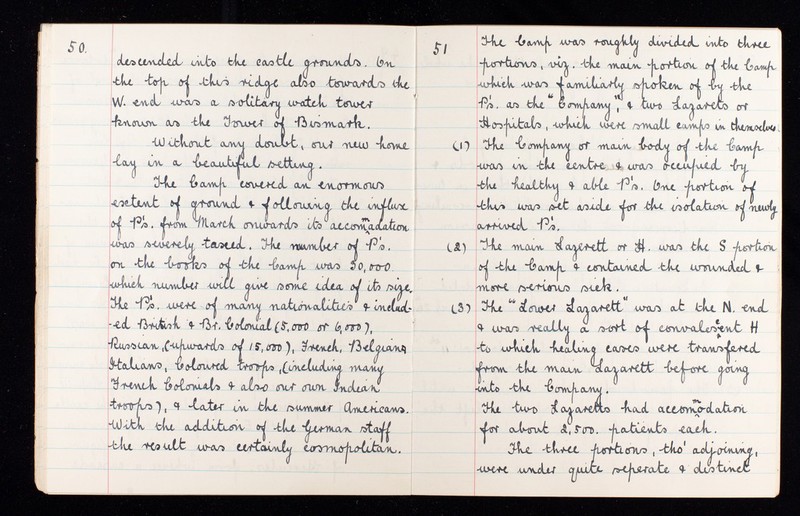 50.
descended into the castle grounds. On
the top of this ridge also towards the
W. end was a solitary watch tower
known as the Tower of Bismark.
Without any doubt, our new home
lay in a beautiful setting.
The Camp covered an enormous
extent of ground & following the influx
of P's. from March onwards its accommodation
was severely taxed. The number of P's.
on the books of the Camp was 50,000
which number will give some idea of its size.
The P's. were of many nationalities & includ-
-ed British & Br. Colonial (5,000 or 6,000),
Russian, (upwards of 15,000), French, Belgians,
Italians, Coloured troops, (including many
French Colonials & also our own Indian
troops), & later in the summer Americans.
With the addition of the German staff
the result was certainly cosmopolitan.
51
The Camp was roughly divided into three
portions, viz. the main portion of the Camp
which was familiarly spoken of by the
P's. as the "Company", & two Lazarets or
Hospitals, which were small camps in themselves.
(1) The Company or main body of the Camp
was in the centre & was occupied by
the healthy & able P's. One portion of
this was set aside for the isolation of newly
arrived P's.
(2) The main Lazerett or H. was the S portion
of the Camp & contained the wounded &
more serious sick.
(3) The "Lower Lazarett" was at the N. end
& was really a sort of convalescent H
to which healing cases were transfered
from the main Lazarett before going
into the Company.
The two Lazaretts had accommodation
for about 2,500. patients each.
The three portions, tho' adjoining,
were under quite seperate & distinct